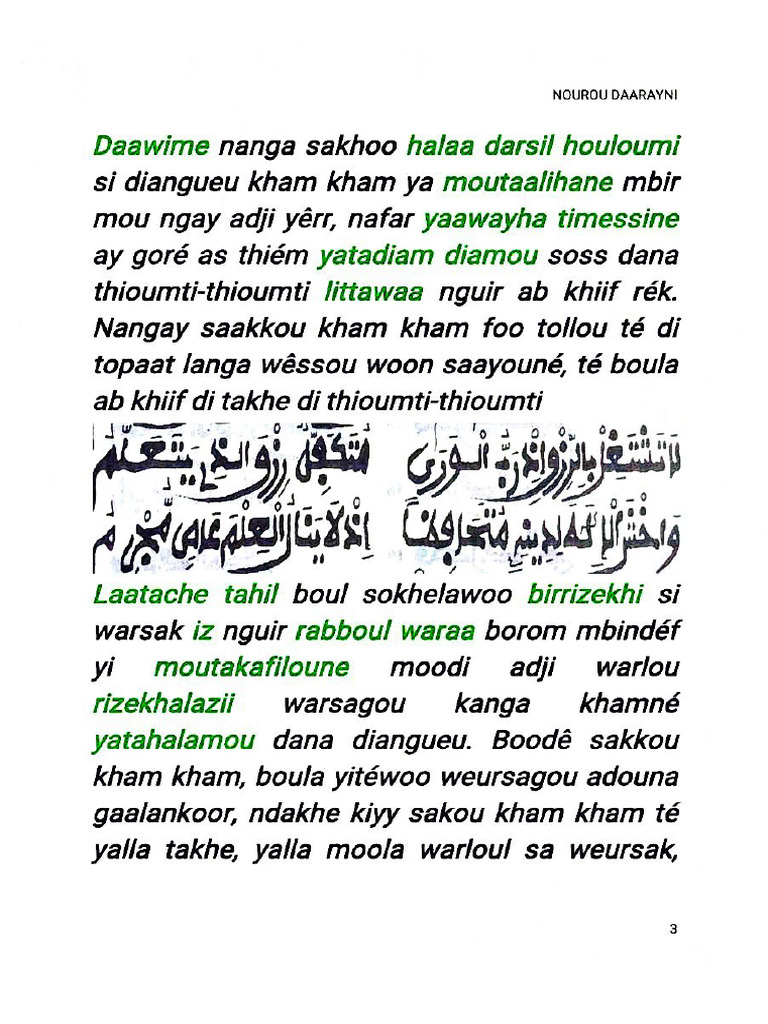 NOUROU DAARAYNI
Daawime nanga sakhoo halaa darsil houloumi
si diangueu kham kham ya moutaalihane mbir
mou ngay adji yêrr, nafar yaawayha timessine
ay goré as thiém yatadiam diamou soss dana
thioumti-thioumti littawaa nguir ab khiif rék.
Nangay saakkou kham kham foo tollou té di
topaat langa wêssou woon saayouné, té boula
ab khiif di takhe di thioumti-thioumti
لا تشتغل بالرزق إذ رب الورى متكفل رزق الذي يتعلم
واخش الإله لدينه متحافظا إذ لا ينال العلم عاصي مجرم
Laatache tahil boul sokhelawoo birrizekhi si
warsak iz nguir rabboul waraa borom mbindéf
yi moutakafiloune moodi adji warlou
rizekhalazii warsagou kanga khamné
yatahalamou dana diangueu. Boodê sakkou
kham kham, boula yitéwoo weursagou adouna
gaalankoor, ndakhe kiyy sakou kham kham té
yalla takhe, yalla moola warloul sa weursak,
3